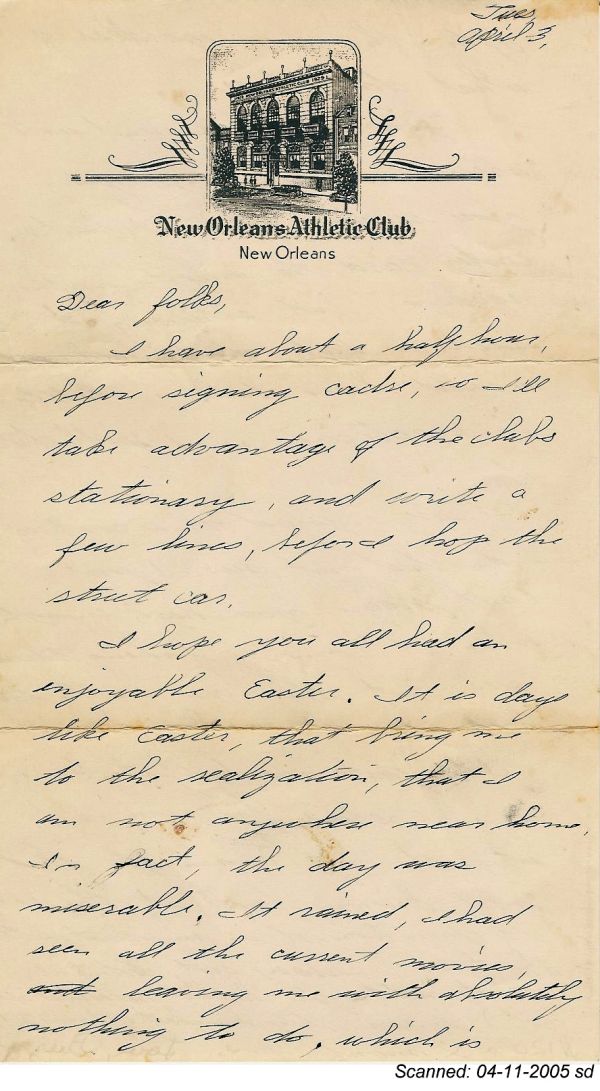 Tues,
April 3,
New Orleans Athletic Club
New Orleans
Dear folks,
I have about a half hour,
before signing cadre, so I'll
take advantage of the clubs
stationary, and write a
few lines, before I hop the
street car.
I hope you all had an
enjoyable Easter. It is days
like Easter, that bring me
to the realization, that I
am not anywhere near home.
In fact, the day was
miserable. It rained, I had
seen all the current movies,
leaving me with absolutely
nothing to do, which is
Scanned: 04-11-2005 sd